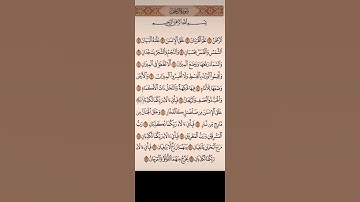 سورة الرحمن
بسم الله الرحمن الرحيم
الرحمن علم القرءان خلق الإنسن علمه البيان
الشمس والقمر بحسبان والنجم والشجر يسجدان
والسماء رفعها ووضع الميزان ألا تطغوا في الميزان
وأقيموا الوزن بالقسط ولا تخسروا الميزان والأرض
وضعها للأنام فيها فكهة والنخل ذات الأكمام
والحب ذو العصف والريحان فبأي ءالاء ربكما تكذبان
خلق الإنسن من صلصل كالفخار وخلق الجان من
مارج من نار فبأي ءالاء ربكما تكذبان رب
المشرقين ورب المغربين فبأي ءالاء ربكما تكذبان
مرج البحرين يلتقيان بينهما برزخ لا يبغيان فبأي ءالاء
ربكما تكذبان يخرج منهما اللؤلؤ والمرجان